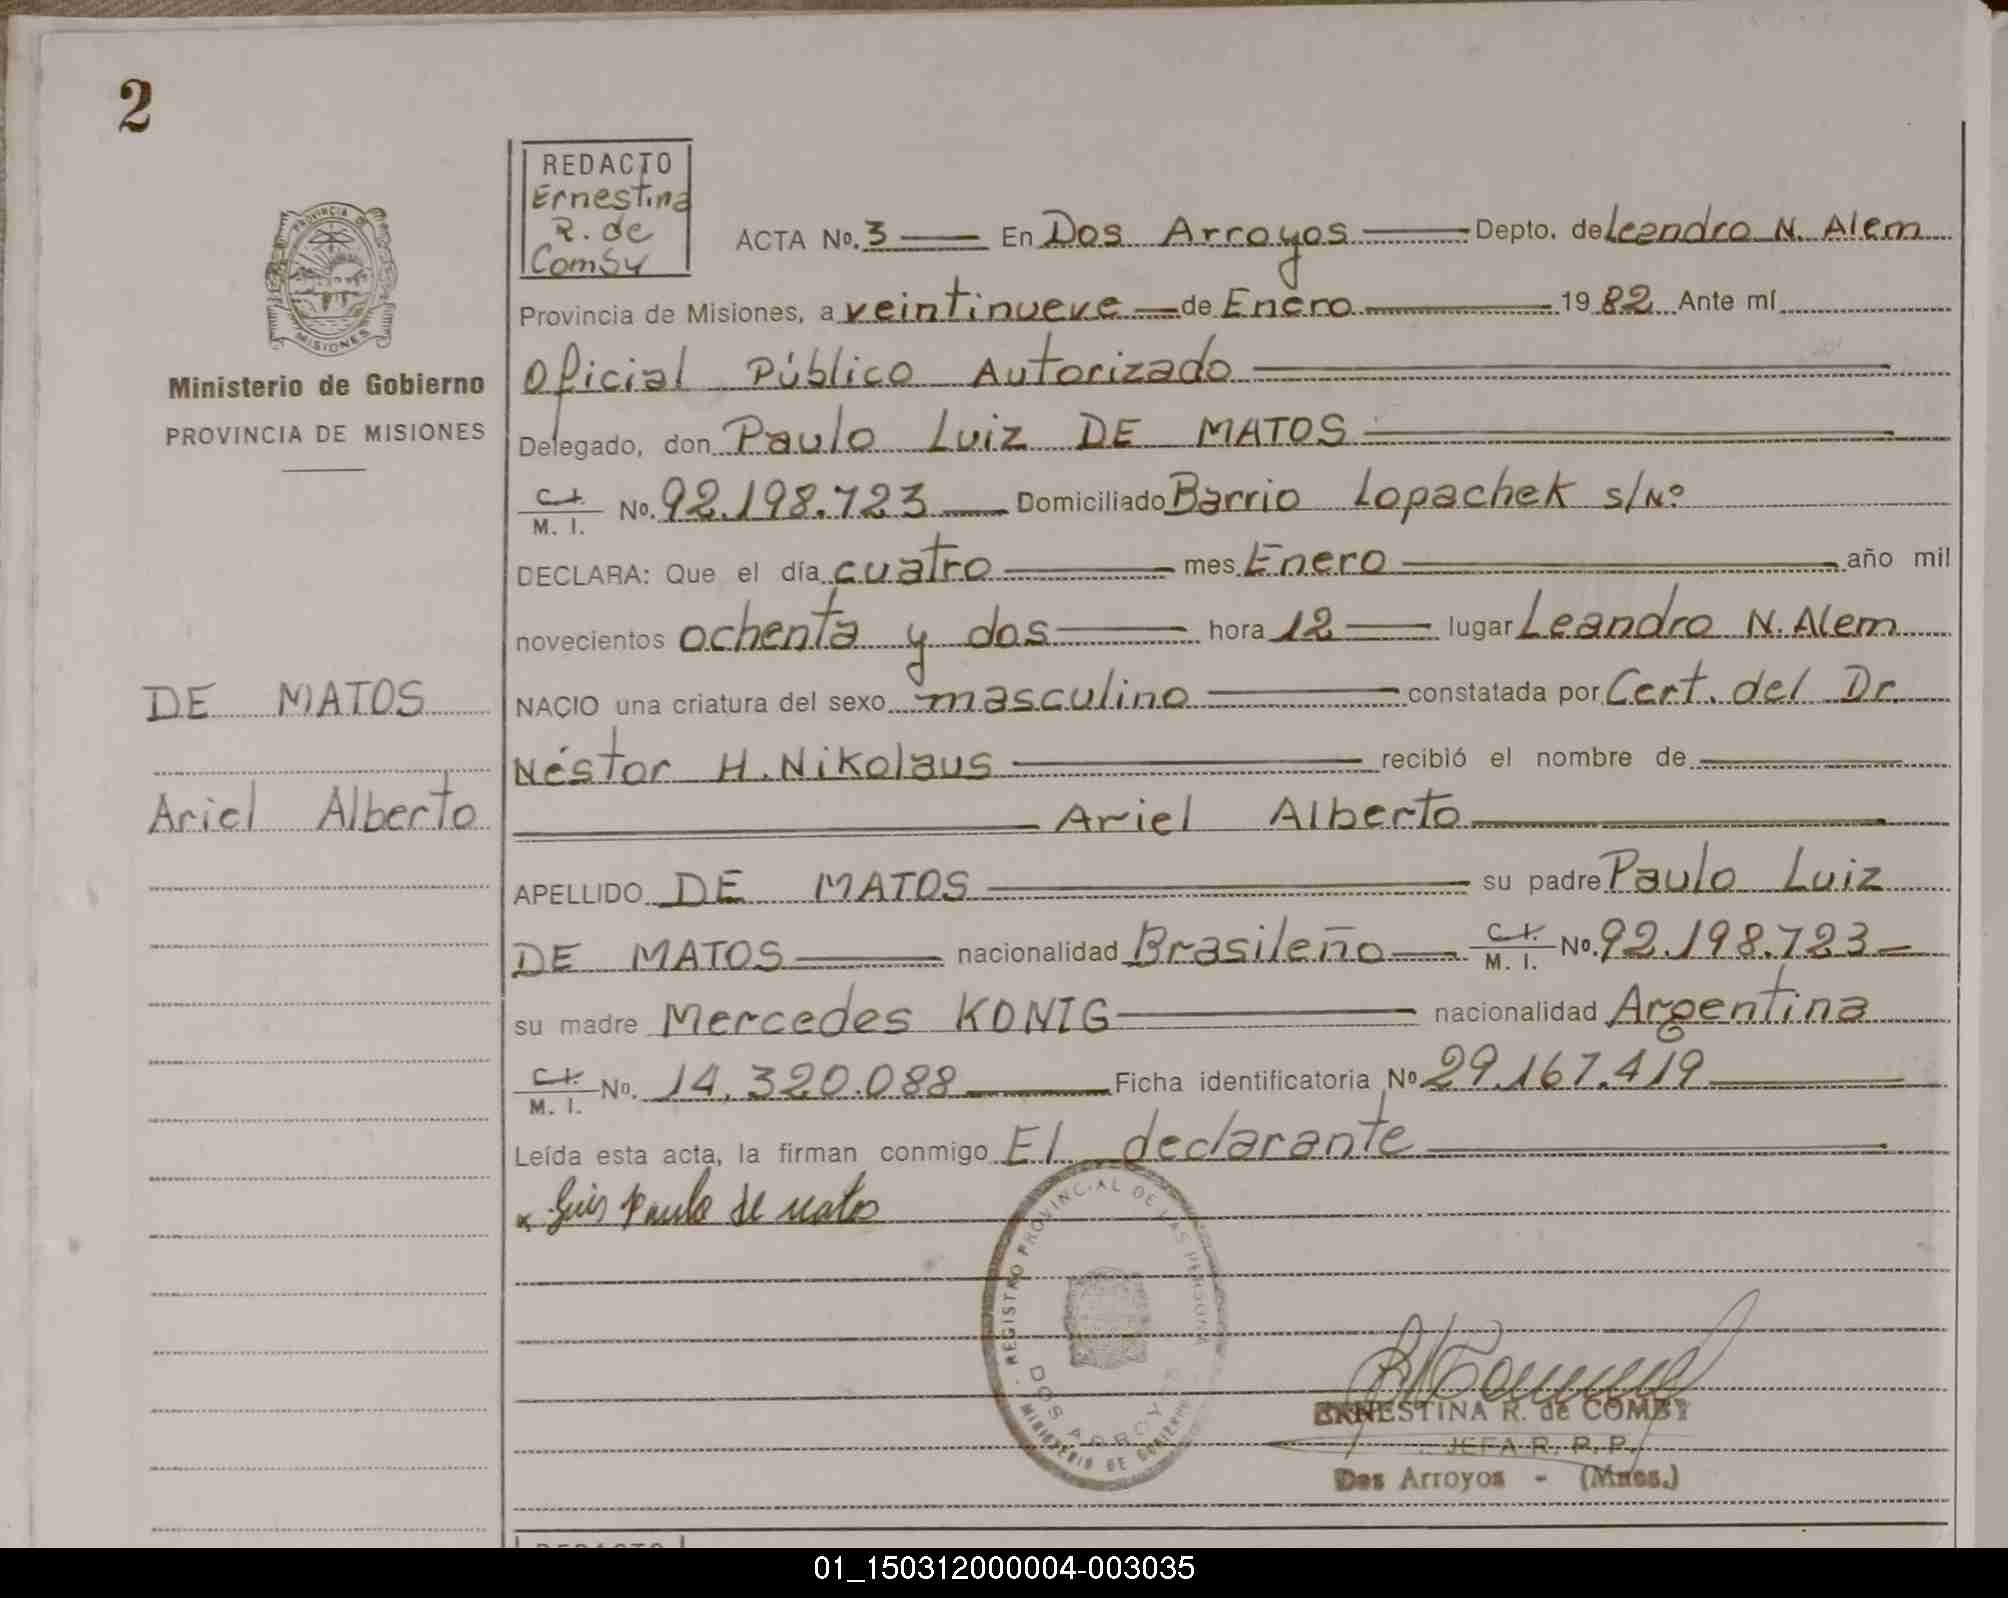 2
REDACTO
Ernestina
R. de
Comby
PROVINCIA DE
MISIONES
Ministerio de Gobierno
PROVINCIA DE MISIONES
ACTA No. 3 En Dos Arroyos Depto. de Leandro N. Alem
Provincia de Misiones, a veintinueve de Enero 1982 Ante mí
Oficial Público Autorizado
Delegado, don Paulo Luiz DE MATOS
C.I. M. I. No. 92.198.723 Domiciliado Barrio Lopachek s/Nº
DECLARA: Que el día cuatro mes Enero año mil
novecientos ochenta y dos hora 12 lugar Leandro N. Alem
NACIO una criatura del sexo masculino constatada por Cert. del Dr.
Néstor H. Nikolaus recibió el nombre de
Ariel Alberto
DE MATOS
Ariel Alberto
APELLIDO DE MATOS su padre Paulo Luiz
DE MATOS nacionalidad Brasileño C.I. M. I. Nº. 92.198.723
su madre Mercedes KONIG nacionalidad Argentina
C.I. M. I. No. 14.320.088 Ficha identificatoria Nº 29.167.419
Leída esta acta, la firman conmigo El declarante
x Luis Paulo de Matos
REGISTRO PROVINCIAL DE LAS PERSONAS
DOS ARROYOS
MINISTERIO DE GOBIERNO
ERNESTINA R. de COMBY
JEFA R. P. P.
Dos Arroyos - (Mnes.)
REDACTO
01_150312000004-003035